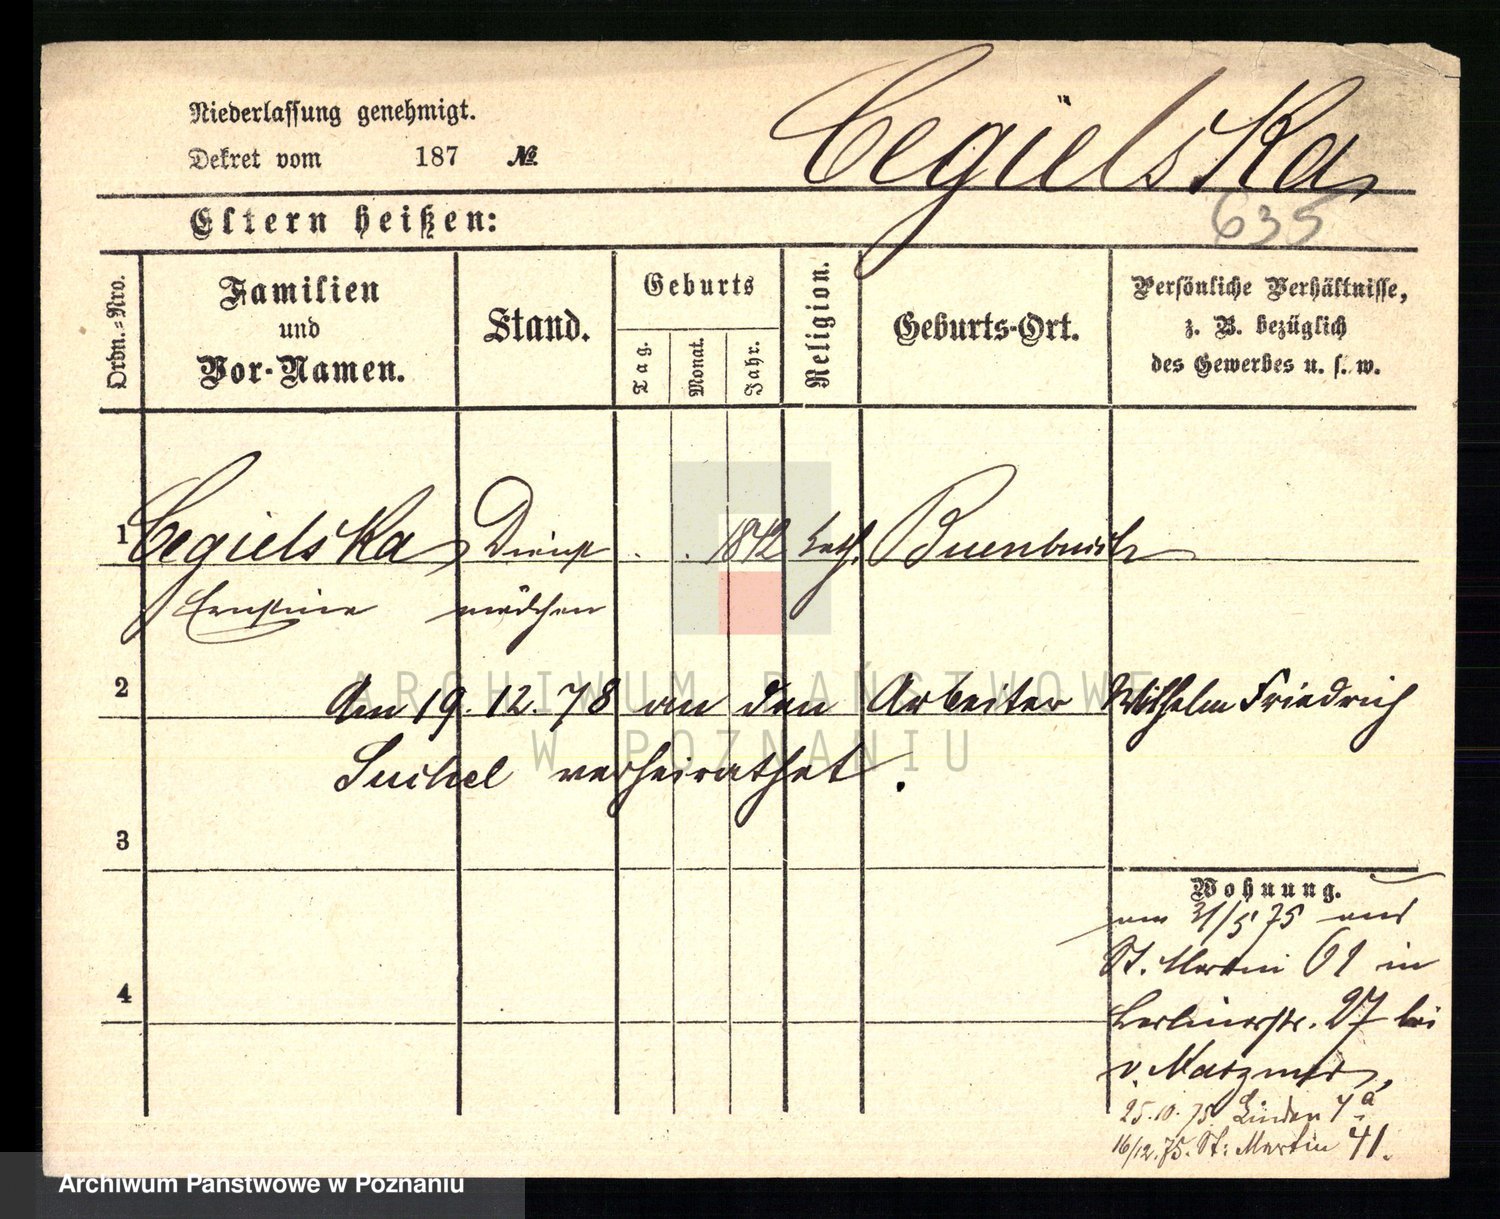 Niederlassung genehmigt.
Dekret vom 187 №
Cegielska
635
Eltern heißen:
Ordn.=Nro.
Familien
und
Vor-Namen.
Stand.
Geburts
Tag.
Monat.
Jahr.
Religion.
Geburts-Ort.
Persönliche Verhältnisse,
z. B. bezüglich
des Gewerbes u. s. w.
1 Cegielska Dienst . . 1842 kath.
Ernstine mädchen
2
Am 19.12.78 an den Arbeiter Wilhelm Friedrich
Suckel verheirathet.
3
Wohnung.
am 31/5 75 aus
St. Martin 61 in
Berlinerstr. 27 bei
4
25.10.75 Linden 4a
16/12.75. St: Martin 41.
ARCHIWUM PAŃSTWOWE
W POZNANIU
Archiwum Państwowe w Poznaniu